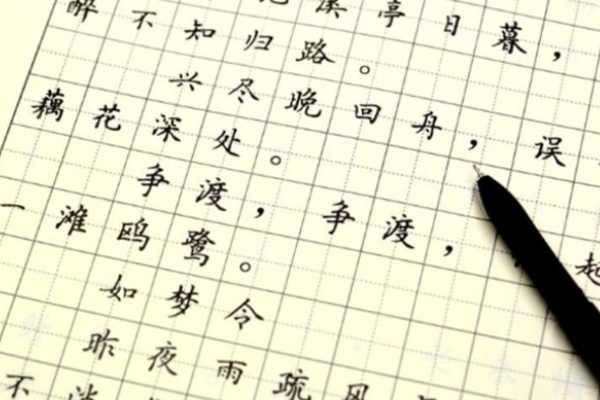 溪亭日暮，
醉不知归路。
兴尽晚回舟，误
藕花深处。
争渡，争渡，起
一滩鸥鹭。
如梦令
昨夜雨疏风
不消